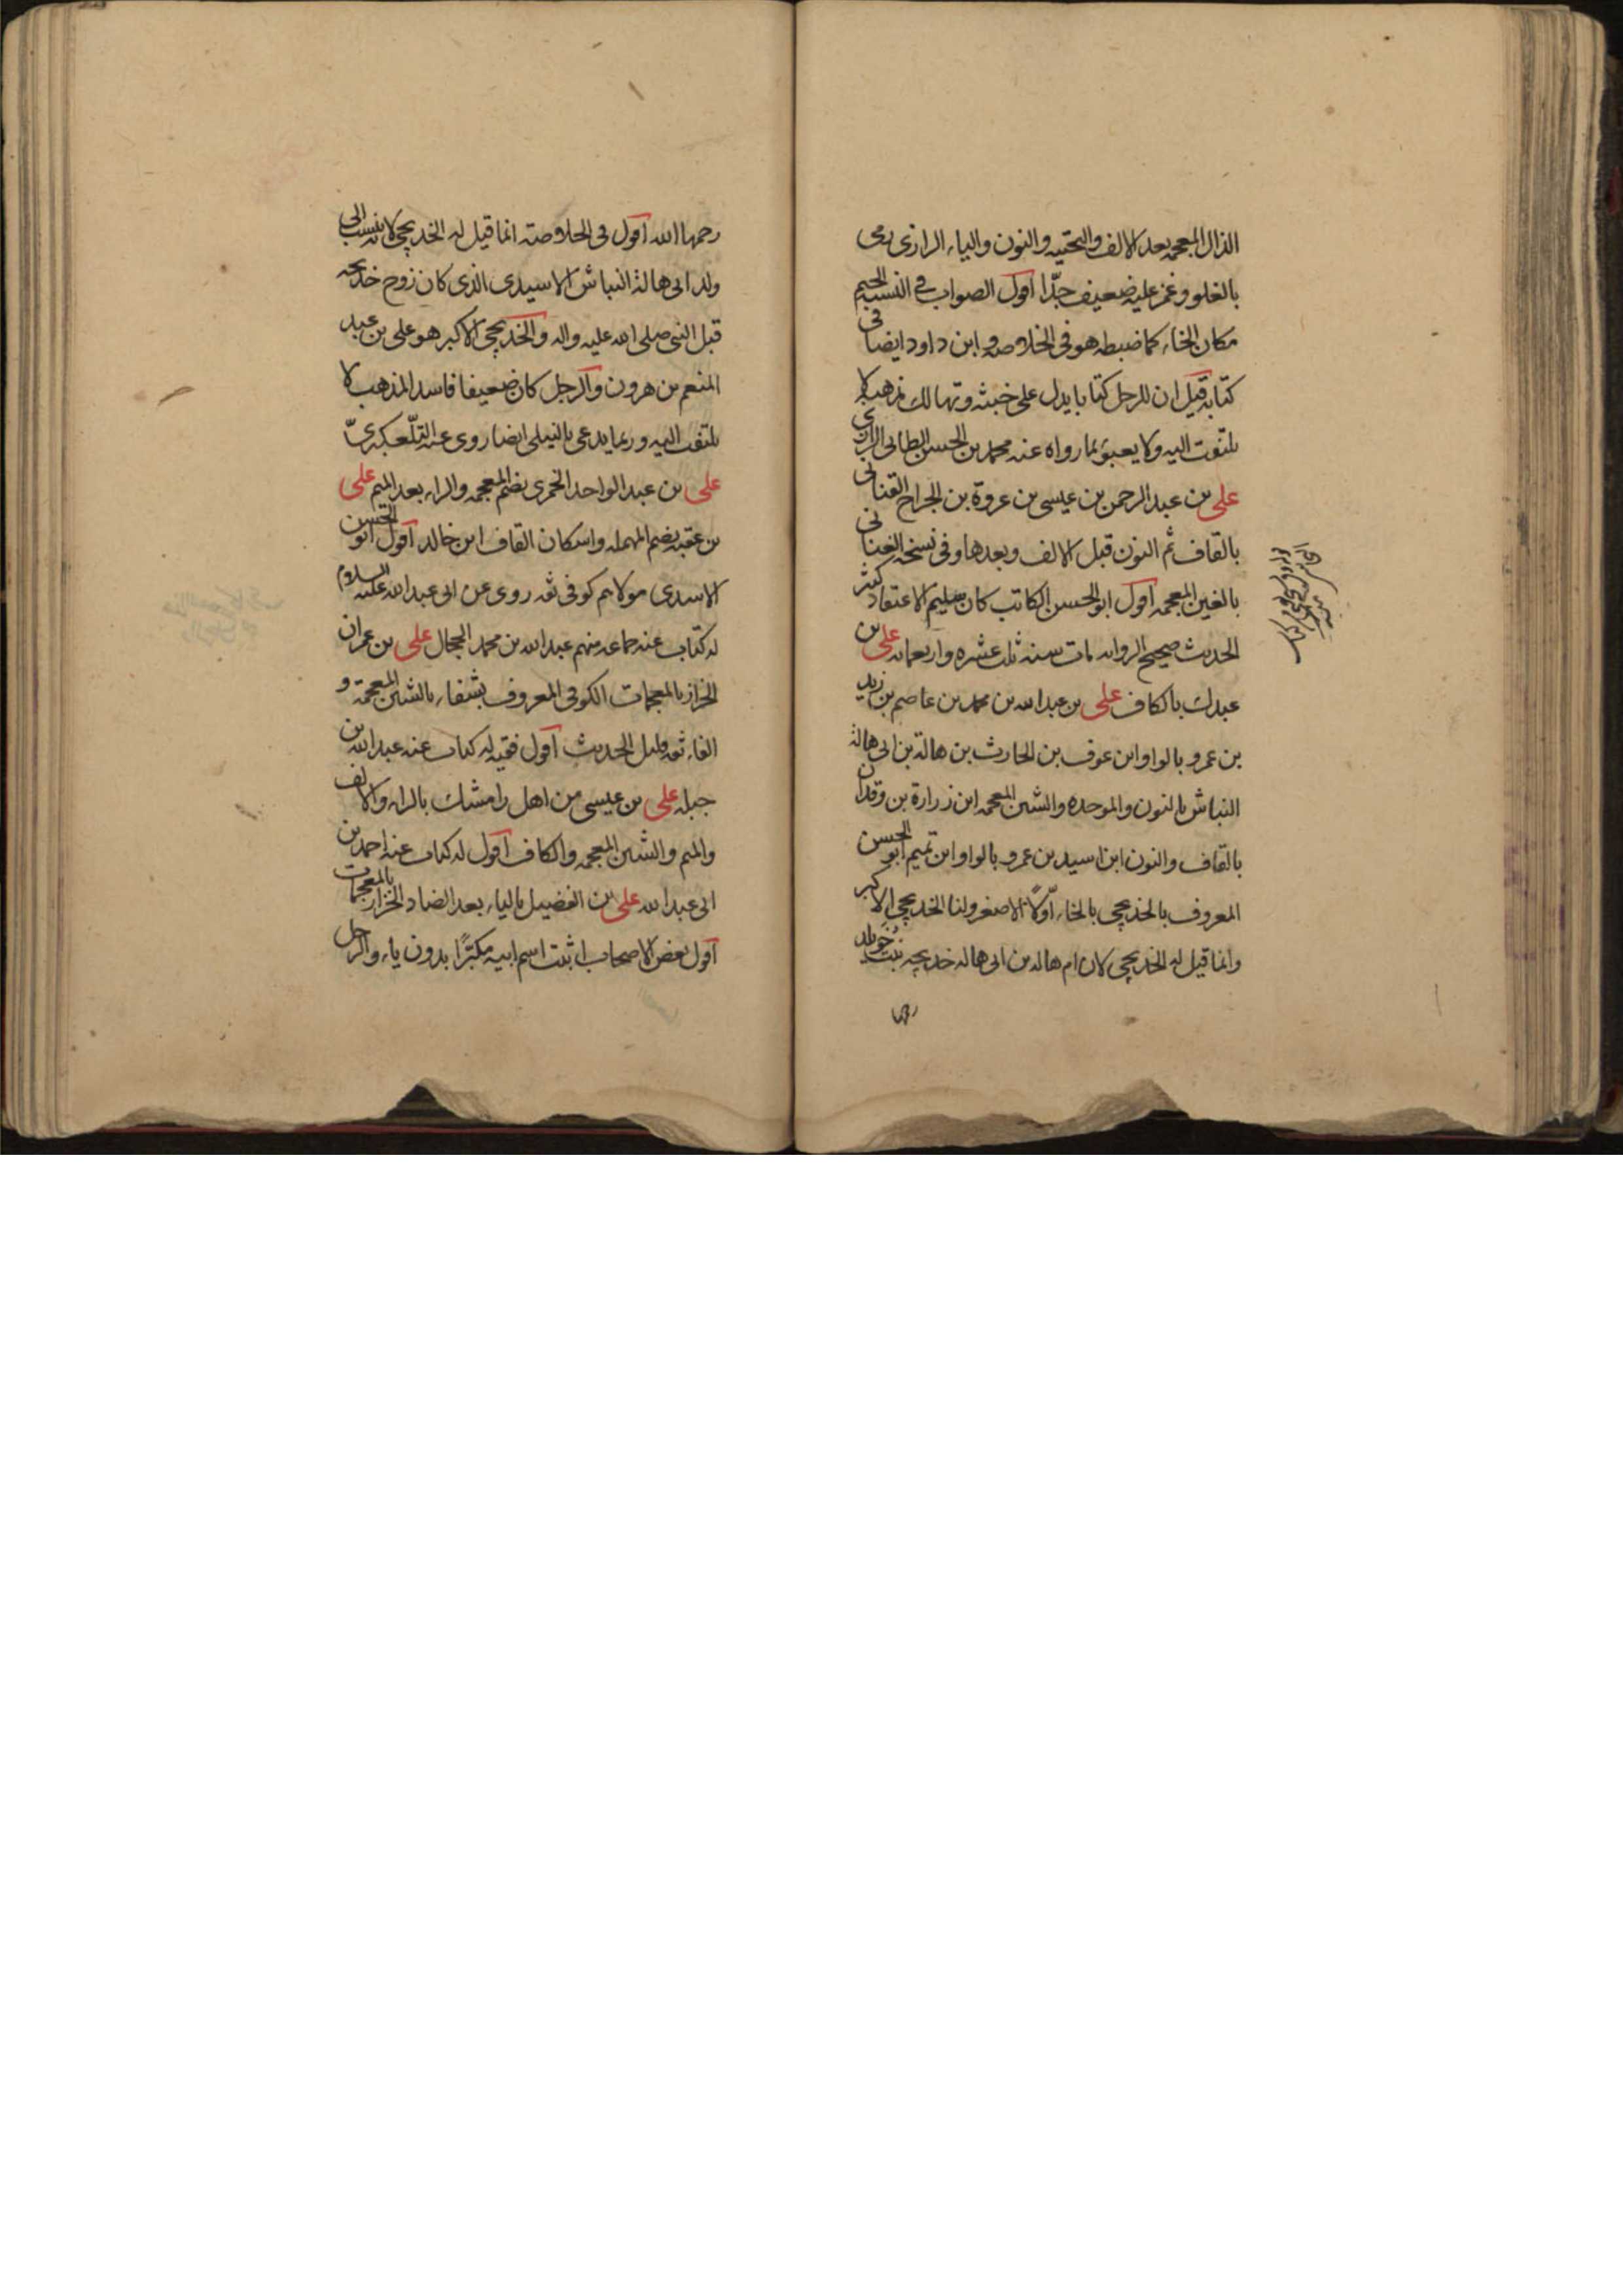 الذال المعجمه بعد الالف والتحتيه والنون والياء الرازى رمى
بالغلو وغمز عليه ضعيف جدّا اقول الصواب فى النسب الجيم
مكان الخاء كما ضبطه هو فى الخلاصه وابن داود ايضا فى
كتابه قيل ان للرجل كتابا يدل على خبثه وتهالك مذهبه لا
يلتفت اليه ولا يعبؤ بما رواه عنه محمد بن الحسن الطائى الرازى
على بن عبد الرحمن بن عيسى بن عروة بن الجراح القنانى
بالقاف ثم النون قبل الالف وبعدها وفى نسخه الغنانى
بالغين المعجمه اقول ابو الحسن الكاتب كان سليم الاعتقاد كثير
الحديث صحيح الروايه مات سنه ثلث عشره واربعمايه على بن
عبدك بالكاف على بن عبد الله بن محمد بن عاصم بن زيد
بن عمرو بالواو ابن عوف بن الحارث بن هالة بن ابى هالة
النباش بالنون والموحده والشين المعجمه ابن زرارة بن وقدان
بالقاف والنون ابن اسيد بن عمرو بالواو ابن تميم ابو الحسن
المعروف بالخديجى بالخاء اوّلا الاصغر ولنا الخديجى الاكبر
وانما قيل له الخديجى لان ام هاله بن ابى هاله خديجه بنت خويلد
رحمها الله اقول فى الخلاصة انما قيل له الخديجى لانه ينسب الى
ولد ابى هالة النباش الاسيدى الذى كان زوج خديجه
قبل النبى صلى الله عليه واله والخديجى الاكبر هو على بن عبد
المنعم بن هرون والرجل كان ضعيفا فاسد المذهب لا
يلتفت اليه وربما يدعى بالنيلى ايضا روى عنه التلّعكبرىّ
على بن عبد الواحد الخمرى بضم المعجمه والراء بعد الميم على
بن عقبه بضم المهمله واسكان القاف ابن خالد اقول ابو الحسن
الاسدى مولاهم كوفى ثقه روى عن ابى عبد الله عليه السلام
له كتاب عنه جماعه منهم عبد الله بن محمد الحجال على بن عمران
الخزاز بالمعجمات الكوفى المعروف بشفاء بالشين المعجمة و
الفاء ثقه قليل الحديث اقول فقيه له كتاب عنه عبد الله بن
جبله على بن عيسى من اهل رامشك بالراء والالف
والميم والشين المعجمه والكاف اقول له كتاب عنه احمد بن
ابى عبد الله على بن الفضيل بالياء بعد الضاد الخزاز بالمعجمات
اقول بعض الاصحاب اثبت اسم ابيه مكبّرًا بدون ياء والرجل